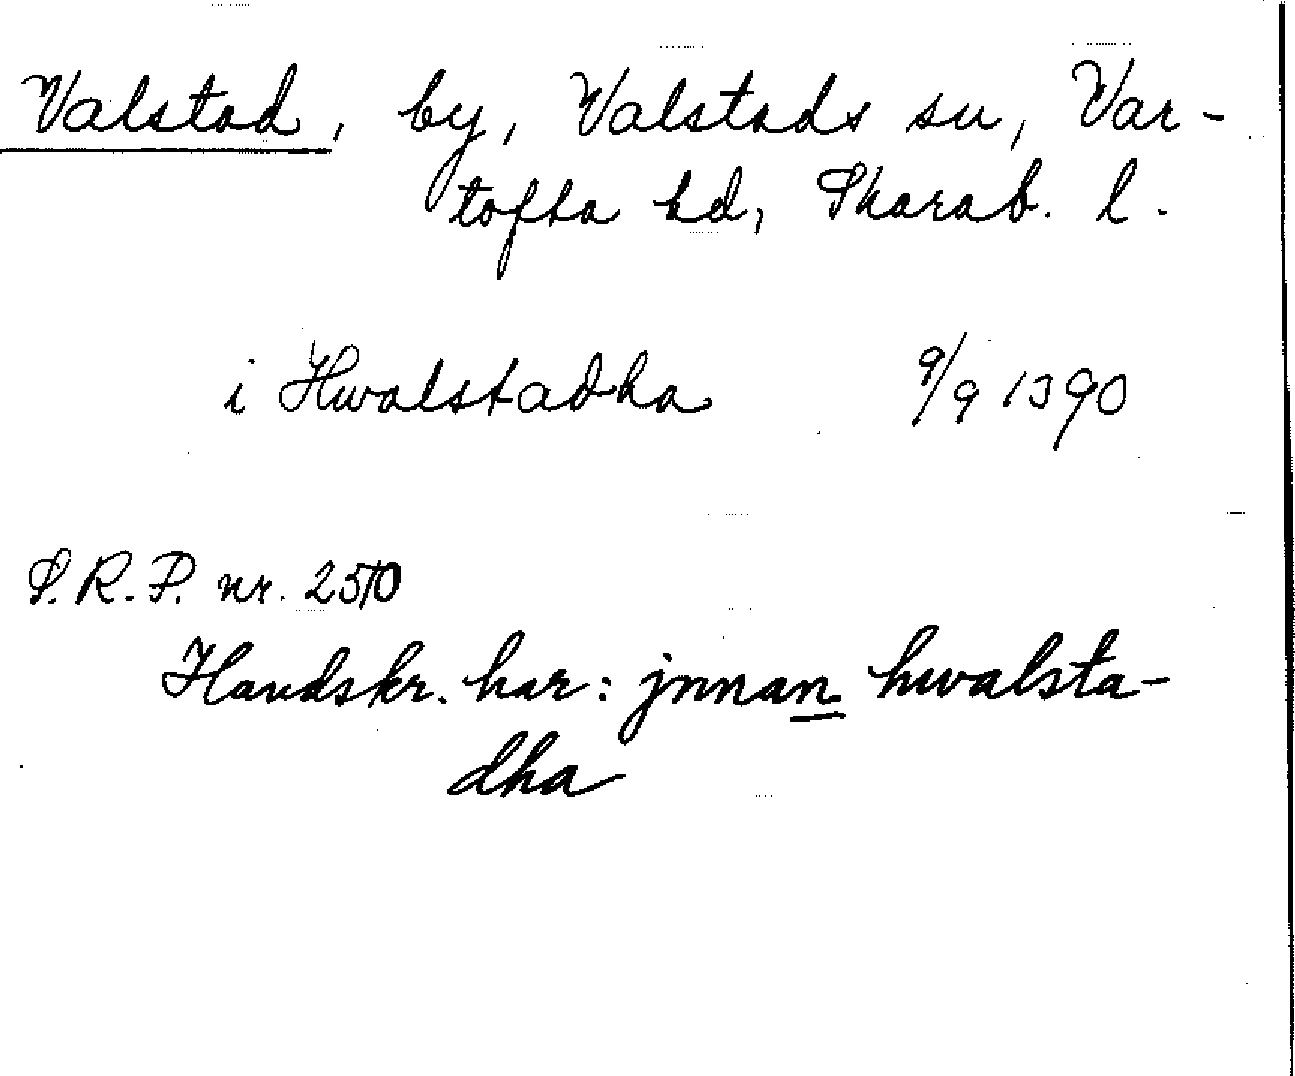 Valstad, by, Valstads sn, Var-
tofta hd, Skarab. l.
i Hwalstadha 9/9 1390
S.R.P. nr. 2510
Handskr. har: jnnan hwalsta-
dha